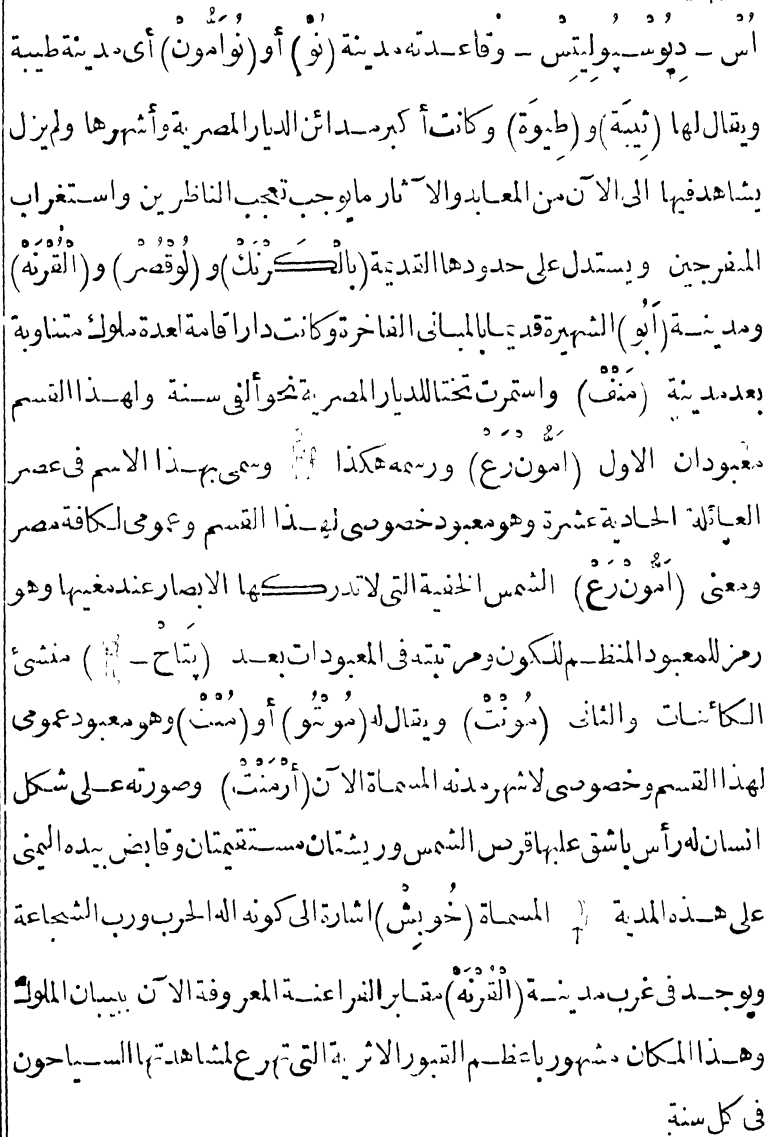 اُسْ ـ دِيُوسْـپُولِيتِسْ ـ وقاعدته مدينة (نُوْ) أو (نُوَامُّونْ) أى مدينة طيبة
ويقال لها (ثِيبَة) و (طِيوَة) وكانت أكبر مدائن الديار المصرية وأشهرها ولم يزل
يشاهد فيها الى الآن من المعابد والآثار ما يوجب تعجب الناظرين واستغراب
المتفرجين ويستدل على حدودها القديمة (بالْكَرْنَكْ) و (لُوقْصُرْ) و (الْقُرْنَهْ)
ومدينة (أَبُو) الشهيرة قديما بالمبانى الفاخرة وكانت دارا قامة لعدة ملوك متناوبة
بعد مدينة (مَنْفْ) واستمرت تختا للديار المصرية نحو ألفى سنة ولهذا القسم
معبودان الاول (امُّونْ رَعْ) ورسمه هكذا وسمى بهذا الاسم فى عصر
العائلة الحادية عشرة وهو معبود خصوصى لهذا القسم وعمومى لكافة مصر
ومعنى (اَمُّونْ رَعْ) الشمس الخفية التى لا تدركها الابصار عند مغيبها وهو
رمز للمعبود المنظم للكون ومرتبته فى المعبودات بعد (پَتَاحْ ـ ) منشئ
الكائنات والثانى (مُونْتْ) ويقال له (مُونْتُو) أو (مُنْتْ) وهو معبود عمومى
لهذا القسم وخصوصى لاشهر مدنه المسماة الآن (أَرْمَنْتْ) وصورته على شكل
انسان له رأس باشق عليها قرص الشمس وريشتان مستقيمتان وقابض بيده اليمنى
على هذه المدية المسماة (خُوپِشْ) اشارة الى كونه اله الحرب ورب الشجاعة
ويوجد فى غرب مدينة (الْقُرْنَهْ) مقابر الفراعنة المعروفة الآن بيبان الملوك
وهذا المكان مشهور باعظم القبور الاثرية التى تهرع لمشاهدتها السياحون
فى كل سنة